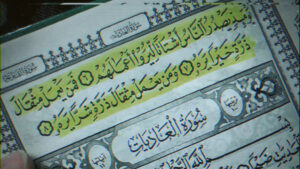 يَوْمَئِذٍ يَصْدُرُ ٱلنَّاسُ أَشْتَاتًا لِّيُرَوْا۟ أَعْمَٰلَهُمْ ٦ فَمَن يَعْمَلْ مِثْقَالَ
ذَرَّةٍ خَيْرًا يَرَهُۥ ٧ وَمَن يَعْمَلْ مِثْقَالَ ذَرَّةٍ شَرًّا يَرَهُۥ ٨
سُورَةُ الْعَادِيَاتِ
بِسْمِ ٱللَّهِ